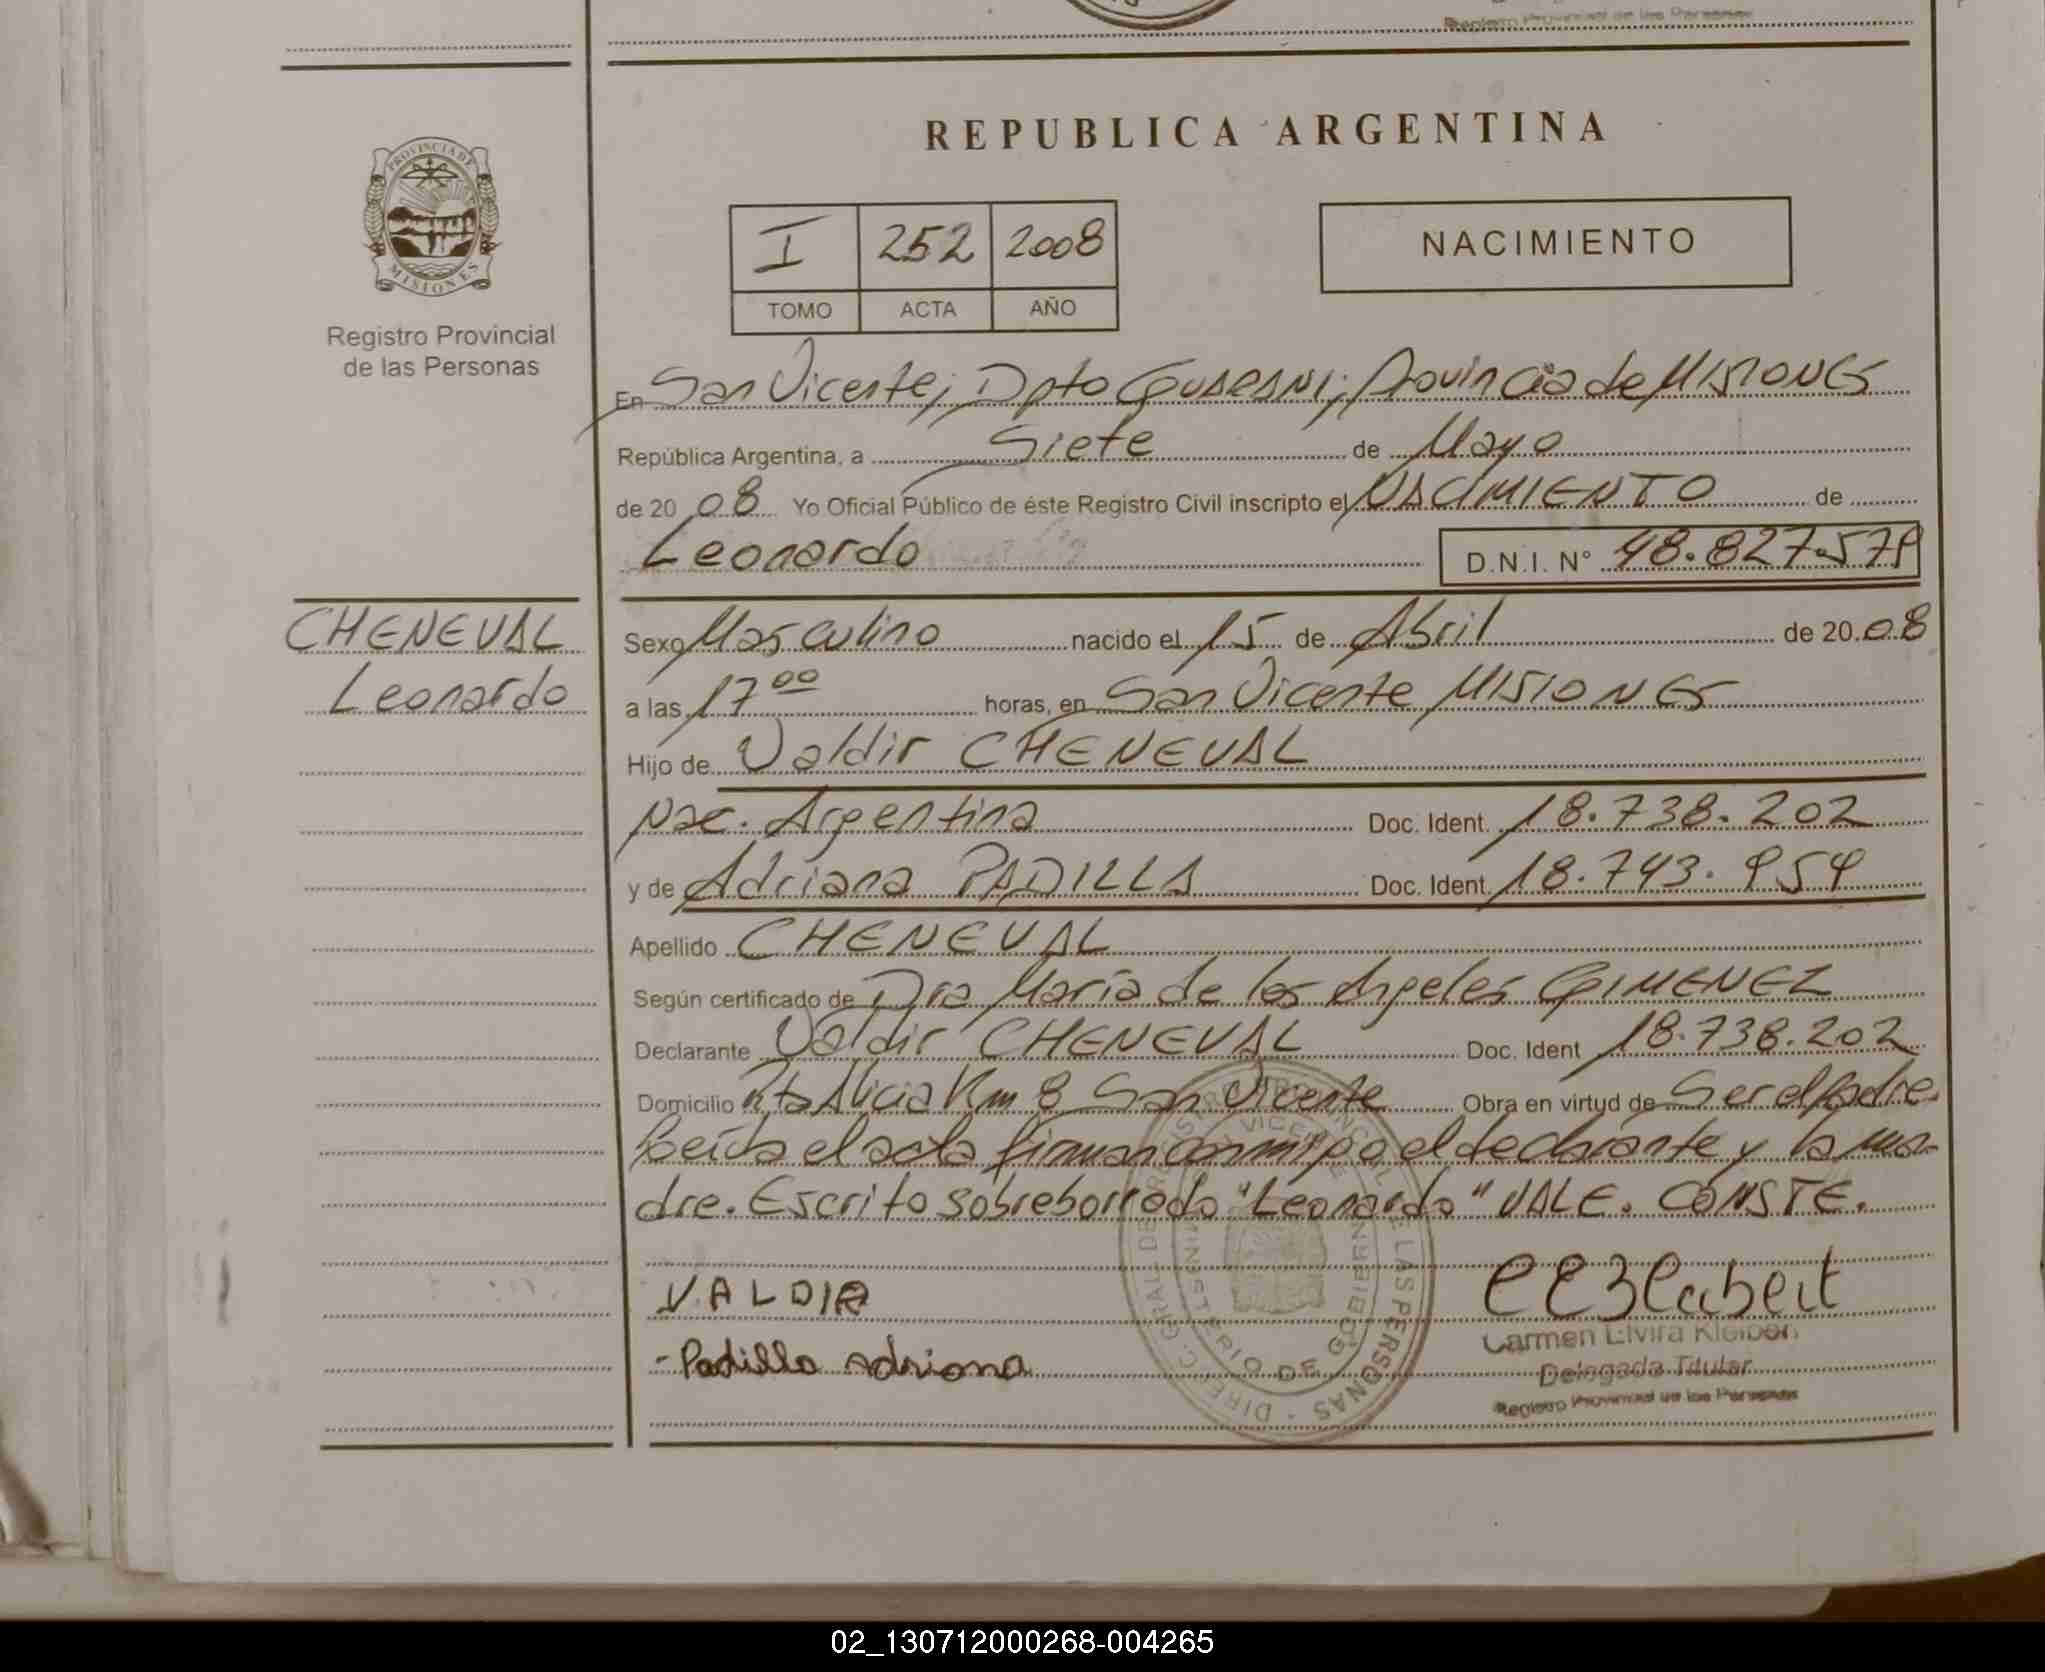 Registro Provincial de las Personas
REPUBLICA ARGENTINA
PROVINCIA DE
MISIONES
Registro Provincial
de las Personas
I 252 2008
TOMO ACTA AÑO
NACIMIENTO
En San Vicente, Dpto Guarani, Provincia de MISIONES
República Argentina, a Siete de Mayo
de 20 08 Yo Oficial Público de éste Registro Civil inscripto el NACIMIENTO de
Leonardo D.N.I. N° 48.827.579
CHENEVAL
Leonardo
Sexo Masculino nacido el 15 de Abril de 20 08
a las 17 00 horas, en San Vicente, MISIONES
Hijo de Valdir CHENEVAL
nac. Argentina Doc. Ident. 18.738.202
y de Adriana PADILLA Doc. Ident. 18.743.954
Apellido CHENEVAL
Según certificado de Dra María de los Angeles GIMENEZ
Declarante Valdir CHENEVAL Doc. Ident 18.738.202
Domicilio Rta Alicia Km 8 San Vicente Obra en virtud de Ser el Padre.
Leída el acta firman conmigo el declarante y la ma-
dre. Escrito sobreborrado "Leonardo" VALE. CONSTE.
VALDIR
- Padilla Adriana
Carmen Elvira
Delegada Titular
Registro Provincial de las Personas
DIREC. GRAL. DE REGISTRO PROVINCIAL DE LAS PERSONAS
MINISTERIO DE GOBIERNO
02_130712000268-004265